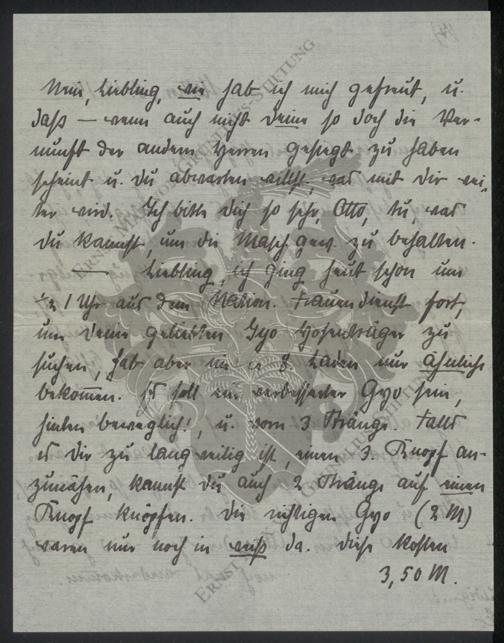 Nein, Liebling, wie hab ich mich gefreut, u.
daß – wenn auch nicht deine so doch die Ver-
nunft der andern Herren gesiegt zu haben
scheint u. du abwarten willst, was mit dir wei-
ter wird. Ich bitte dich so sehr, Otto, tu was
du kannst, um die Masch.gew. zu behalten.
– Liebling, ich ging heut schon um
½ 1 Uhr aus dem Nation. Frauendienst fort,
um deine geliebten Gyo Hosenträger zu
suchen, hab aber im 8. Laden nur ähnliche
bekommen. Es soll ein verbesserter Gyo sein,
hinten beweglich!, u. vorn 3 Stränge. Falls
es dir zu langweilig ist, einen 3. Knopf an-
zunähen, kannst du auch 2 Stränge auf einen
Knopf knöpfen. Die richtigen Gyo (2 M)
waren nur noch in weiß da. Diese kosten
3,50 M.